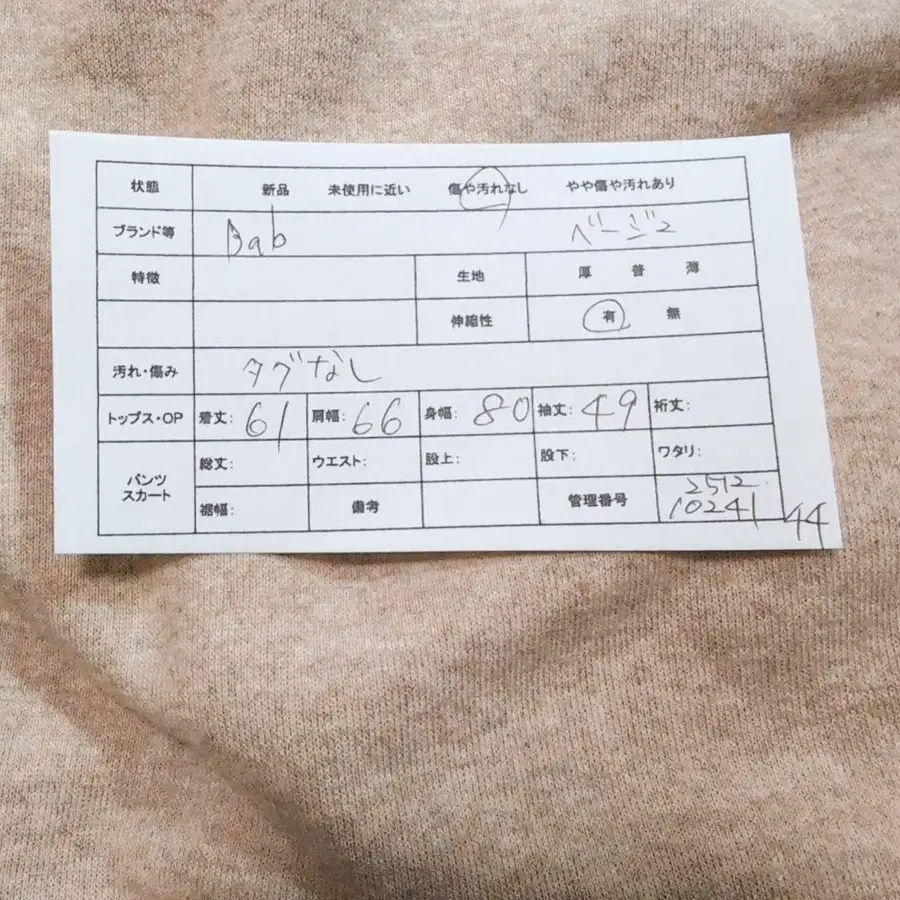 状態 新品 未使用に近い 傷や汚れなし やや傷や汚れあり
ブランド等 Bab ベージュ
特徴 生地 厚 普 薄
伸縮性 有 無
汚れ・傷み タグなし
トップス・OP 着丈: 61 肩幅: 66 身幅: 80 袖丈: 49 裄丈:
パンツ スカート 総丈: ウエスト: 股上: 股下: ワタリ:
裾幅: 備考 管理番号 2512 10241 44